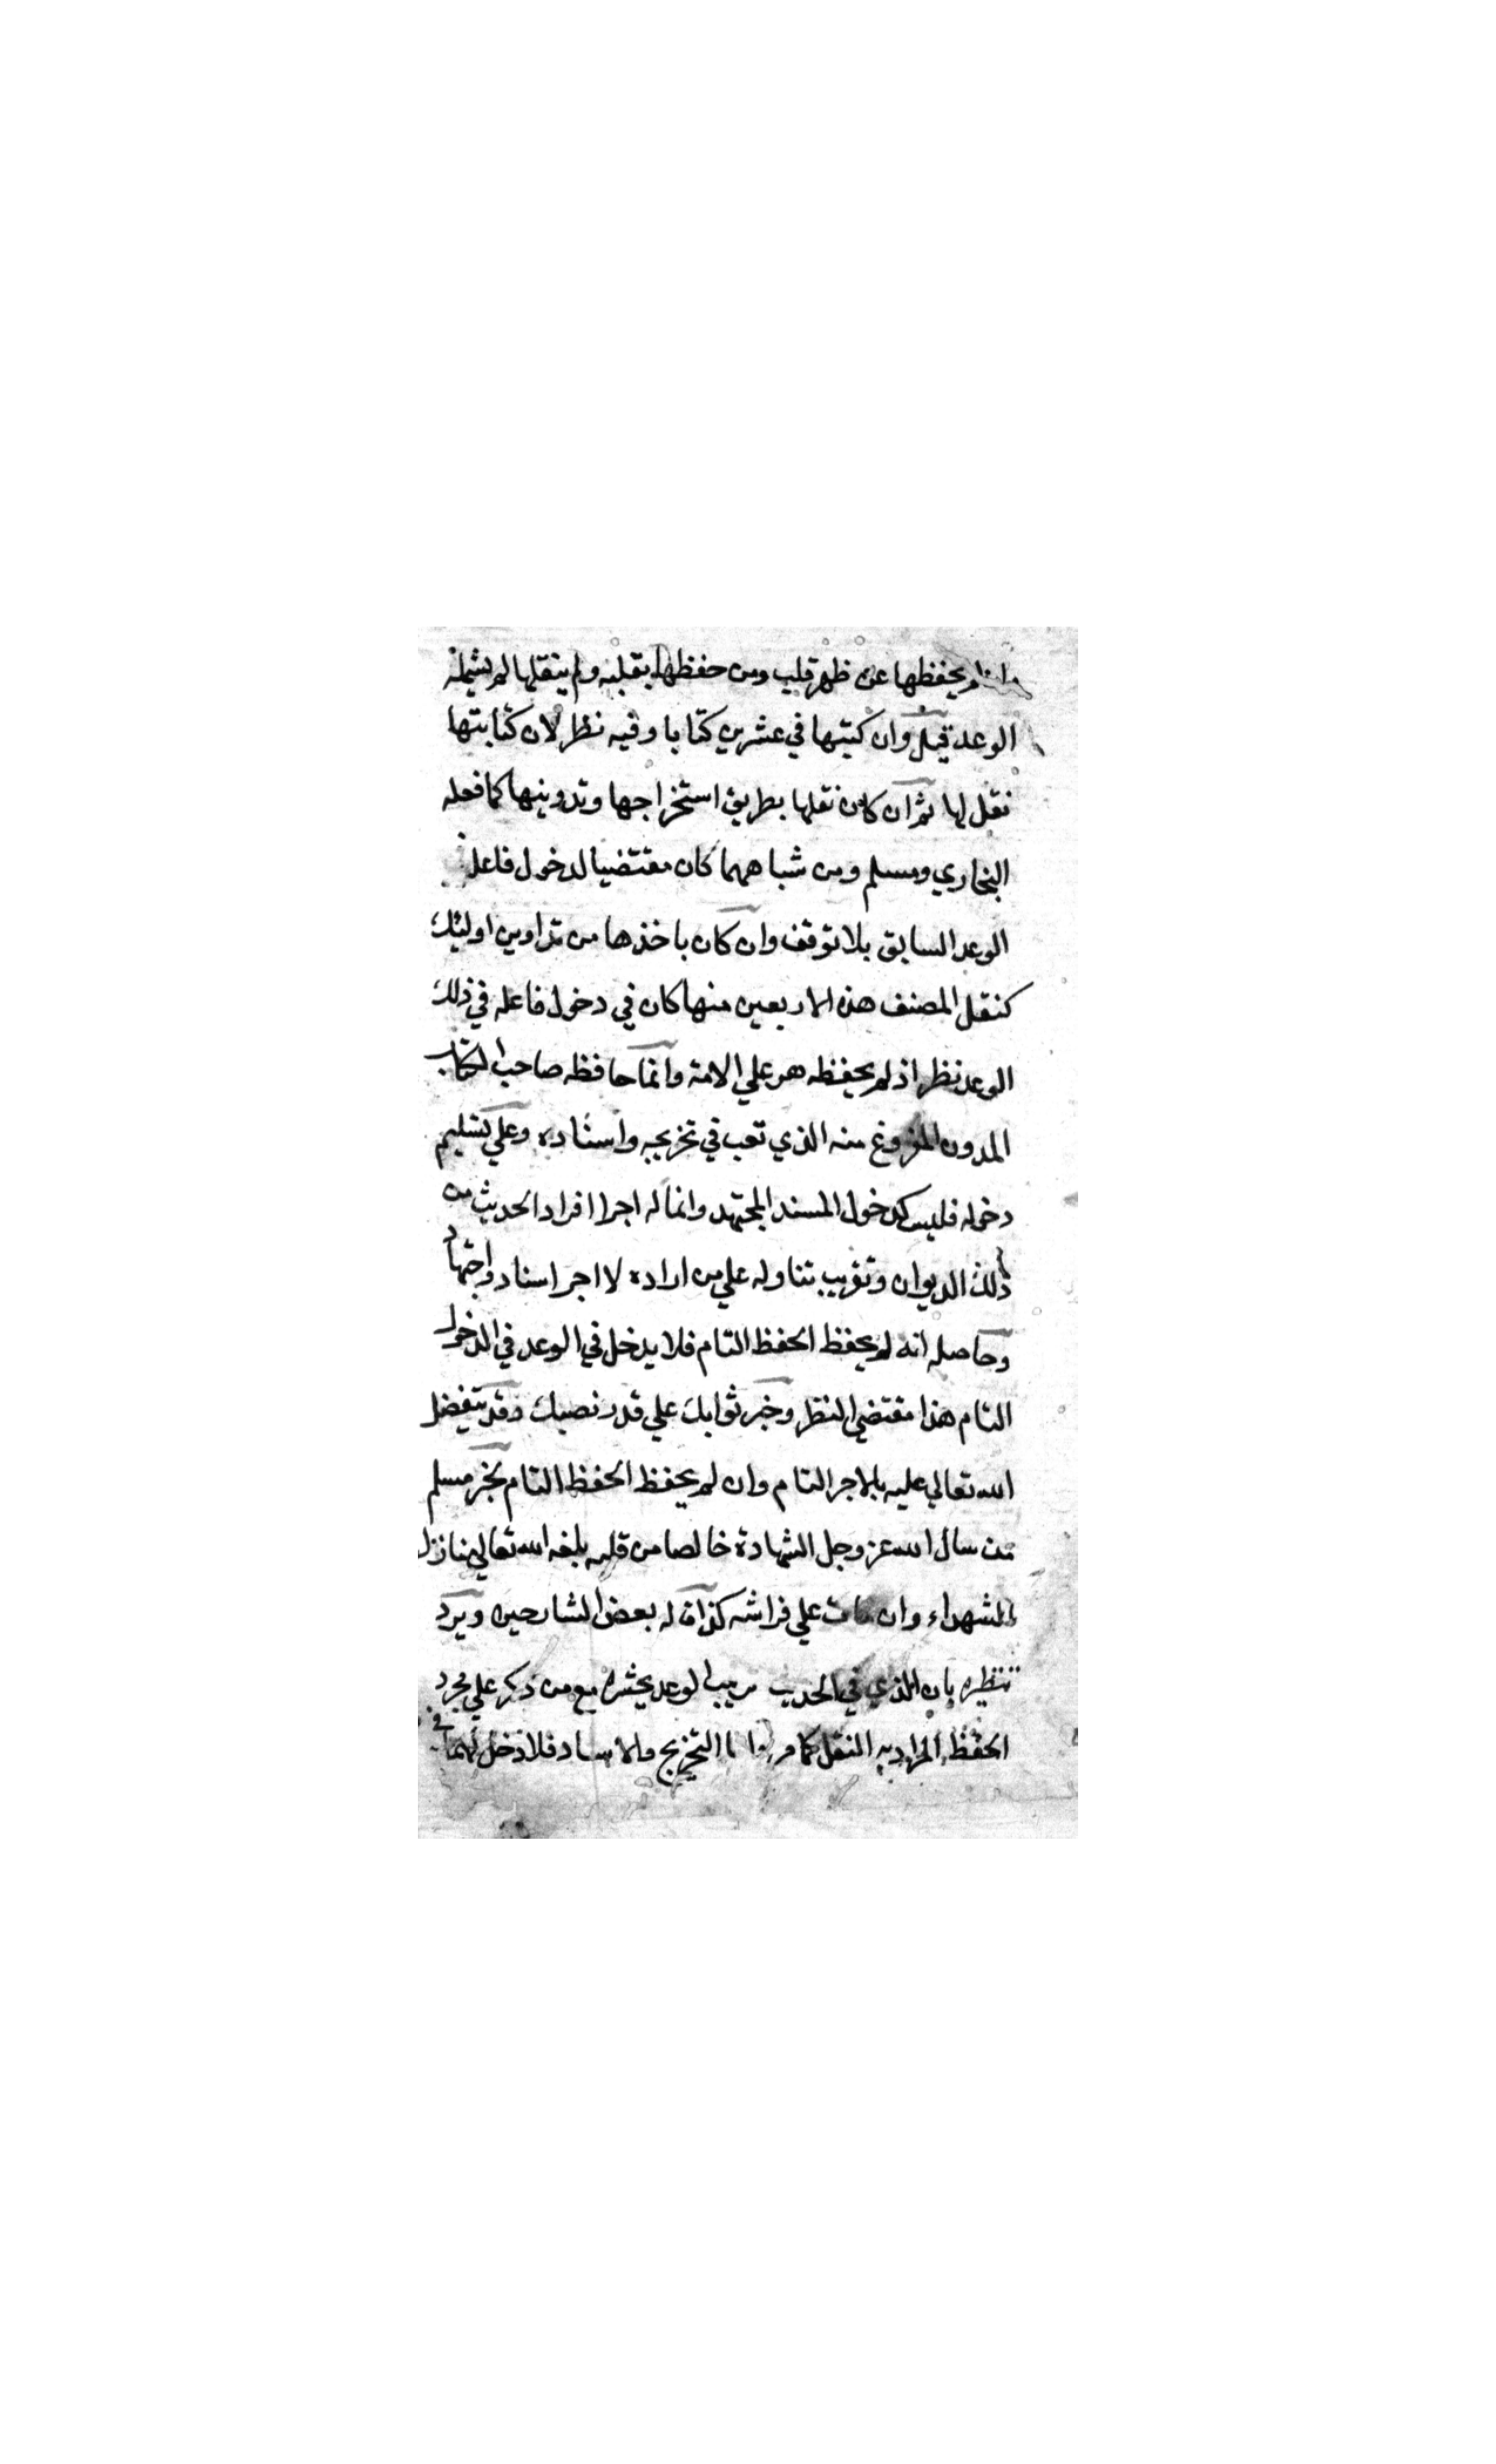 وان لم يحفظها عن ظهر قلب ومن حفظها بقلبه ولم ينقلها لم يشمله
الوعد قيل وان كتبها في عشرين كتابا وفيه نظر لان كتابتها
نقل لها ثم ان كان نقلها بطريق استخراجها وتدوينها كما فعله
البخاري ومسلم ومن شباههما كان مقتضيا لدخول فاعله
الوعد السابق بلا توقف وان كان باخذها من دواوين اوليك
كنقل المصنف هذه الاربعين منها كان في دخول فاعله في ذلك
الوعد نظر اذ لم يحفظه هو علي الامة وانما حافظه صاحب الكتاب
المدون المفروغ منه الذي تعب في تخريجه واسناده وعلي تسليم
دخوله فليس كدخول المسند المجتهد وانما له اجر افراد الحديث من
ذلك الديوان وتقريب تناوله علي من اراده لا اجر اسناد واجتهاد
وحاصله انه لم يحفظ الحفظ التام فلا يدخل في الوعد في الدخول
التام هذا مقتضي النظر وخبر ثوابك علي قدر نصبك وقد يتفضل
الله تعالي عليه بالاجر التام وان لم يحفظ الحفظ التام لخبر مسلم
من سال الله عز وجل الشهادة خالصا من قلبه بلغه الله تعالي منازل
الشهداء وان مات علي فراشه كذا قاله بعض الشارحين ويرد
تنظيره بان الذي في الحديث ترتيب الوعد بحشره مع من ذكر علي مجرد
الحفظ المراد به النقل كما مر واما التخريج والاسناد فلا دخل لهما في